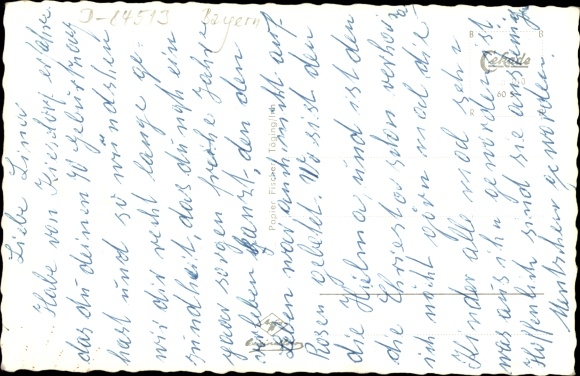 D-84513 Bayern
Liebe Lina
Habe von Kiesdorf erfahren
das du deinen 70 Geburtstag
hast und so wünschen
wir dir recht lange ge-
sundheit, das du noch ein
paar sorgen frohe Jahre
erleben kanzt, den den
Leen war auch nicht auf
Rosen gebetet. Wo ist den
die Hielma, und ist den
die Christa schon verheira
ich möcht gern mal die
Kinder alle mod sehn
was aus ihn geworden ist
Hoffenlich sind sie anständige
Menschen geworden.
Papier Fischer, Töging/Inn
Cekade
Agfa